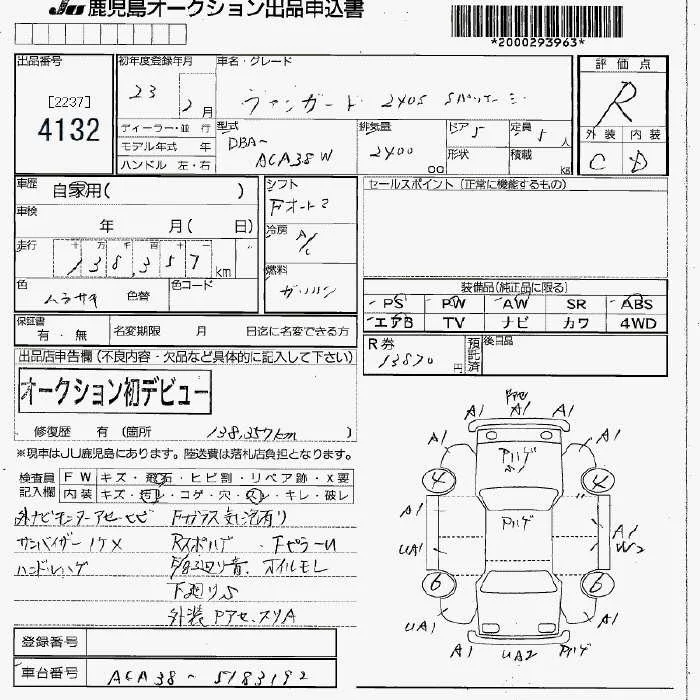 JU 鹿児島オークション出品申込書
*2000293963*
出品番号
[2237]
4132
初年度登録年月
23 2月
車名・グレード
ヴァンガード 240S Sパッケージ
評価点
R
外装 内装
C D
ディーラー・並行
モデル年式 年
ハンドル 左・右
型式
DBA-
ACA38W
排気量
2400
cc
ドア 5
形状
定員 5人
積載 kg
車歴
自家用( )
車検
年 月( 日)
走行
十 万 千 百 十 一
138,357 km
色
ムラサキ 色替
色コード
シフト
Fオート
冷房
A/C
燃料
ガソリン
セールスポイント(正常に機能するもの)
装備品(純正品に限る)
PS PW AW SR ABS
エアB TV ナビ カワ 4WD
保証書
有・無
名変期限 月 日迄に名変できる方
R券
13870円
預託済
後日品
出品店申告欄(不良内容・欠品など具体的に記入して下さい)
オークション初デビュー
修復歴 有 (箇所 138,357km )
※現車はJU鹿児島にあります。陸送費は落札店負担となります。
検査員記入欄
FW キズ・飛石・ヒビ割・リペア跡・X要
内装 キズ・汚れ・コゲ・穴・スレ・キレ・破レ
サンバイザー
ハンドルハゲ
Fガラス
オイルモレ
下廻りS
外装
A1 A1 A1
A1 A1
4 4
A1 A1
W2
UA1
6 6
UA1 A1
A1 UA2
登録番号
車台番号 ACA38-5183192